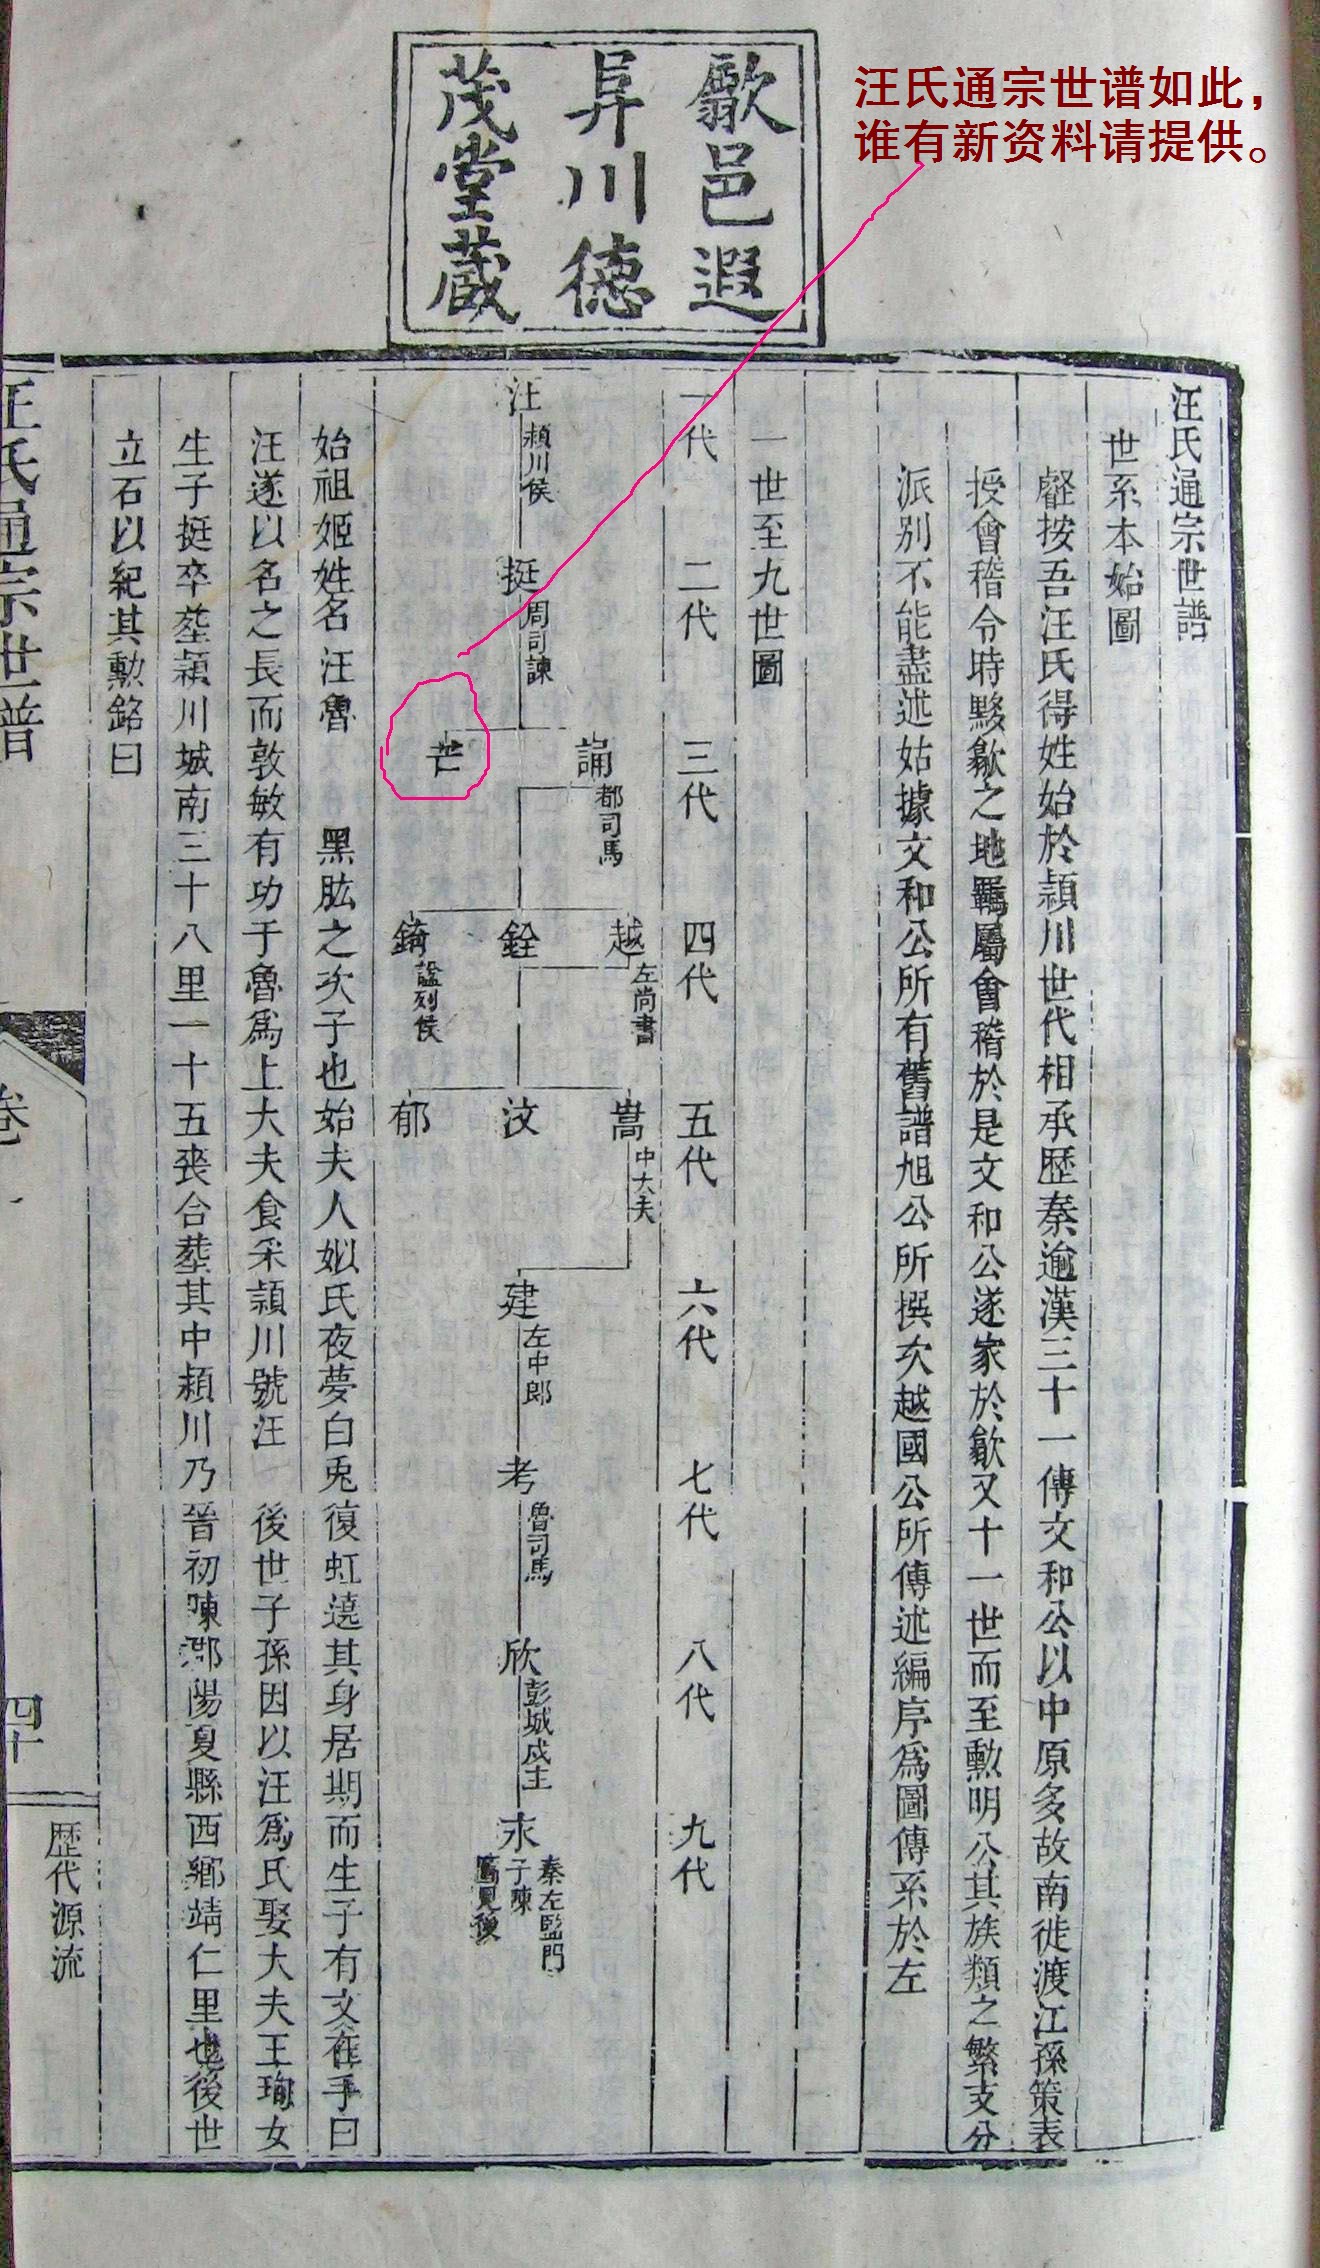 汪氏通宗世谱如此，
谁有新资料请提供。
歙邑遐
阜川德
茂堂蔵
汪氏通宗世譜
世系本始圖
龤按吾汪氏得姓始於頴川世代相承歷秦逾漢三十一傳文和公以中原多故南徙渡江孫策表
授會稽令時黟歙之地羈屬會稽於是文和公遂家於歙又十一世而至勲明公其族類之繁支分
派别不能盡述姑據文和公所有舊譜旭公所撰次越國公所傳述編序爲圖傳系於左
一世至九世圖
一代 二代 三代 四代 五代 六代 七代 八代 九代
誦 都司馬
越 左尚書
嵩 中大夫
汪 頴川侯
挺 周司諫
銓
汶
建 左中郎
考 魯司馬
欣 彭城戍主
末 秦左監門
子陳
見後
芒
錡 謚列侯
郁
始祖姬姓名汪魯 黑肱之次子也始夫人姒氏夜夢白兎復虹遶其身居期而生子有文在手曰
汪遂以名之長而敦敏有功于魯爲上大夫食采頴川號汪 後世子孫因以汪爲氏娶大夫王珣女
生子挺卒塟頴川城南三十八里一十五喪合塟其中頴川乃晉初陳郡陽夏縣西鄉靖仁里也後世
立石以紀其勲銘曰
汪氏通宗世譜
卷一
四十
歷代源流